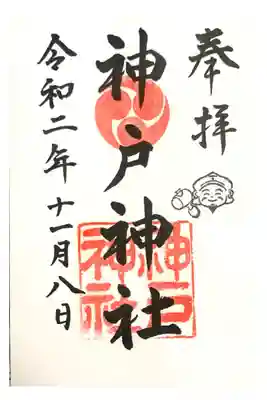 奉拝
神戸神社
神戸
神社
令和二年十一月八日